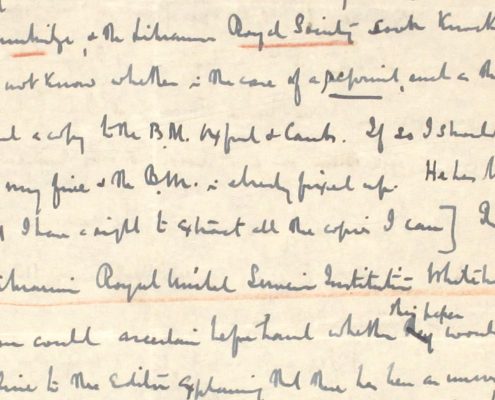 & the Librarian Royal Society South
not know whether in the case of a reprint, such as this
a copy to the B.M. Oxford & Camb. If so I should
my fine & the B.M. is already fixed up. He has
I have a right to extract all the copies I can]
Librarian Royal United Service Institution Whitehall
could ascertain beforehand whether they would
to the Editor explaining that there has been an